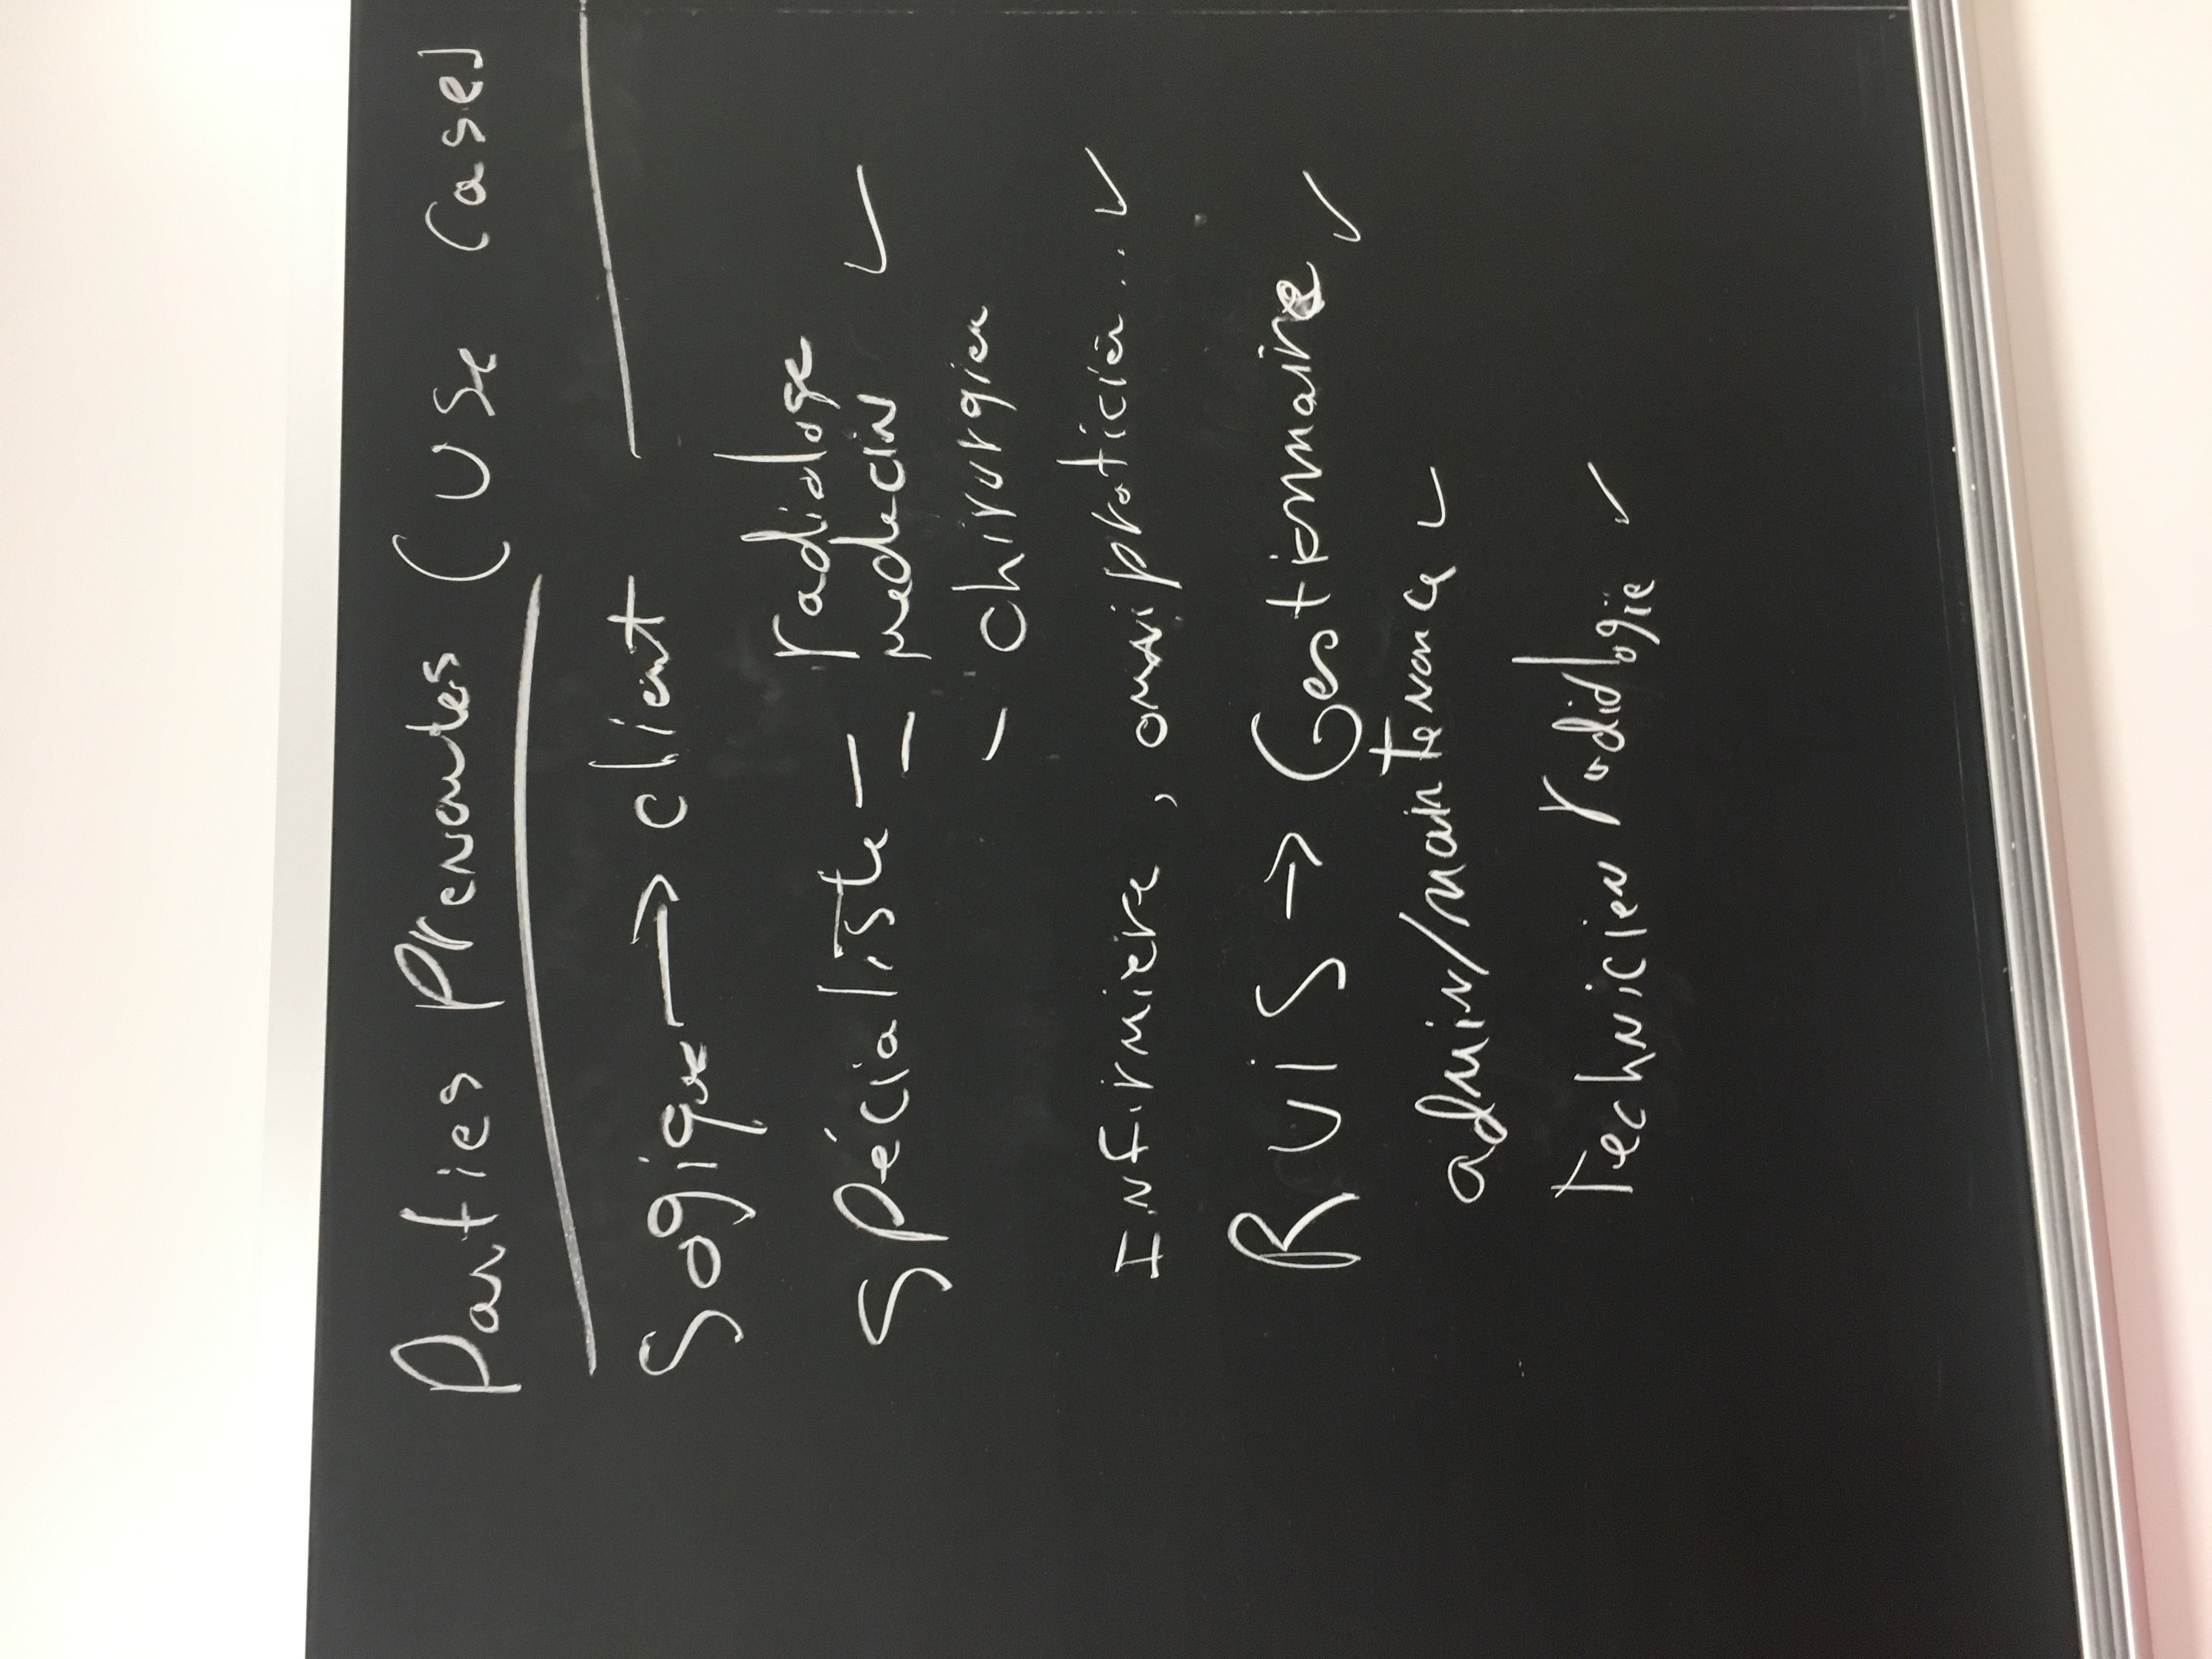 Parties Prenantes (Use Cases)
Sogique → client
Spécialiste – radiologe
– medecin ✓
– chirurgien
Infirmière, omnipraticien.. ✓
RUIS → Gestionnaire ✓
admin/maintenance ✓
Technicien radiologie ✓